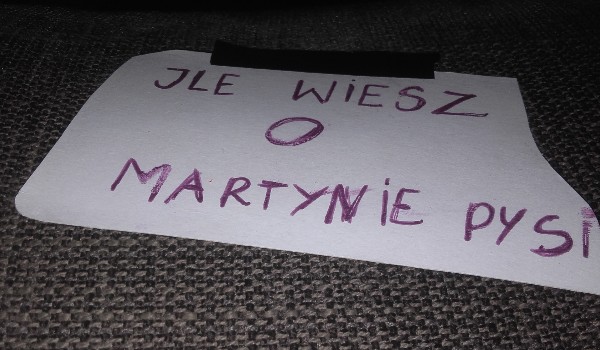 JLE WiESZ
O
MARTYNiE PYSi